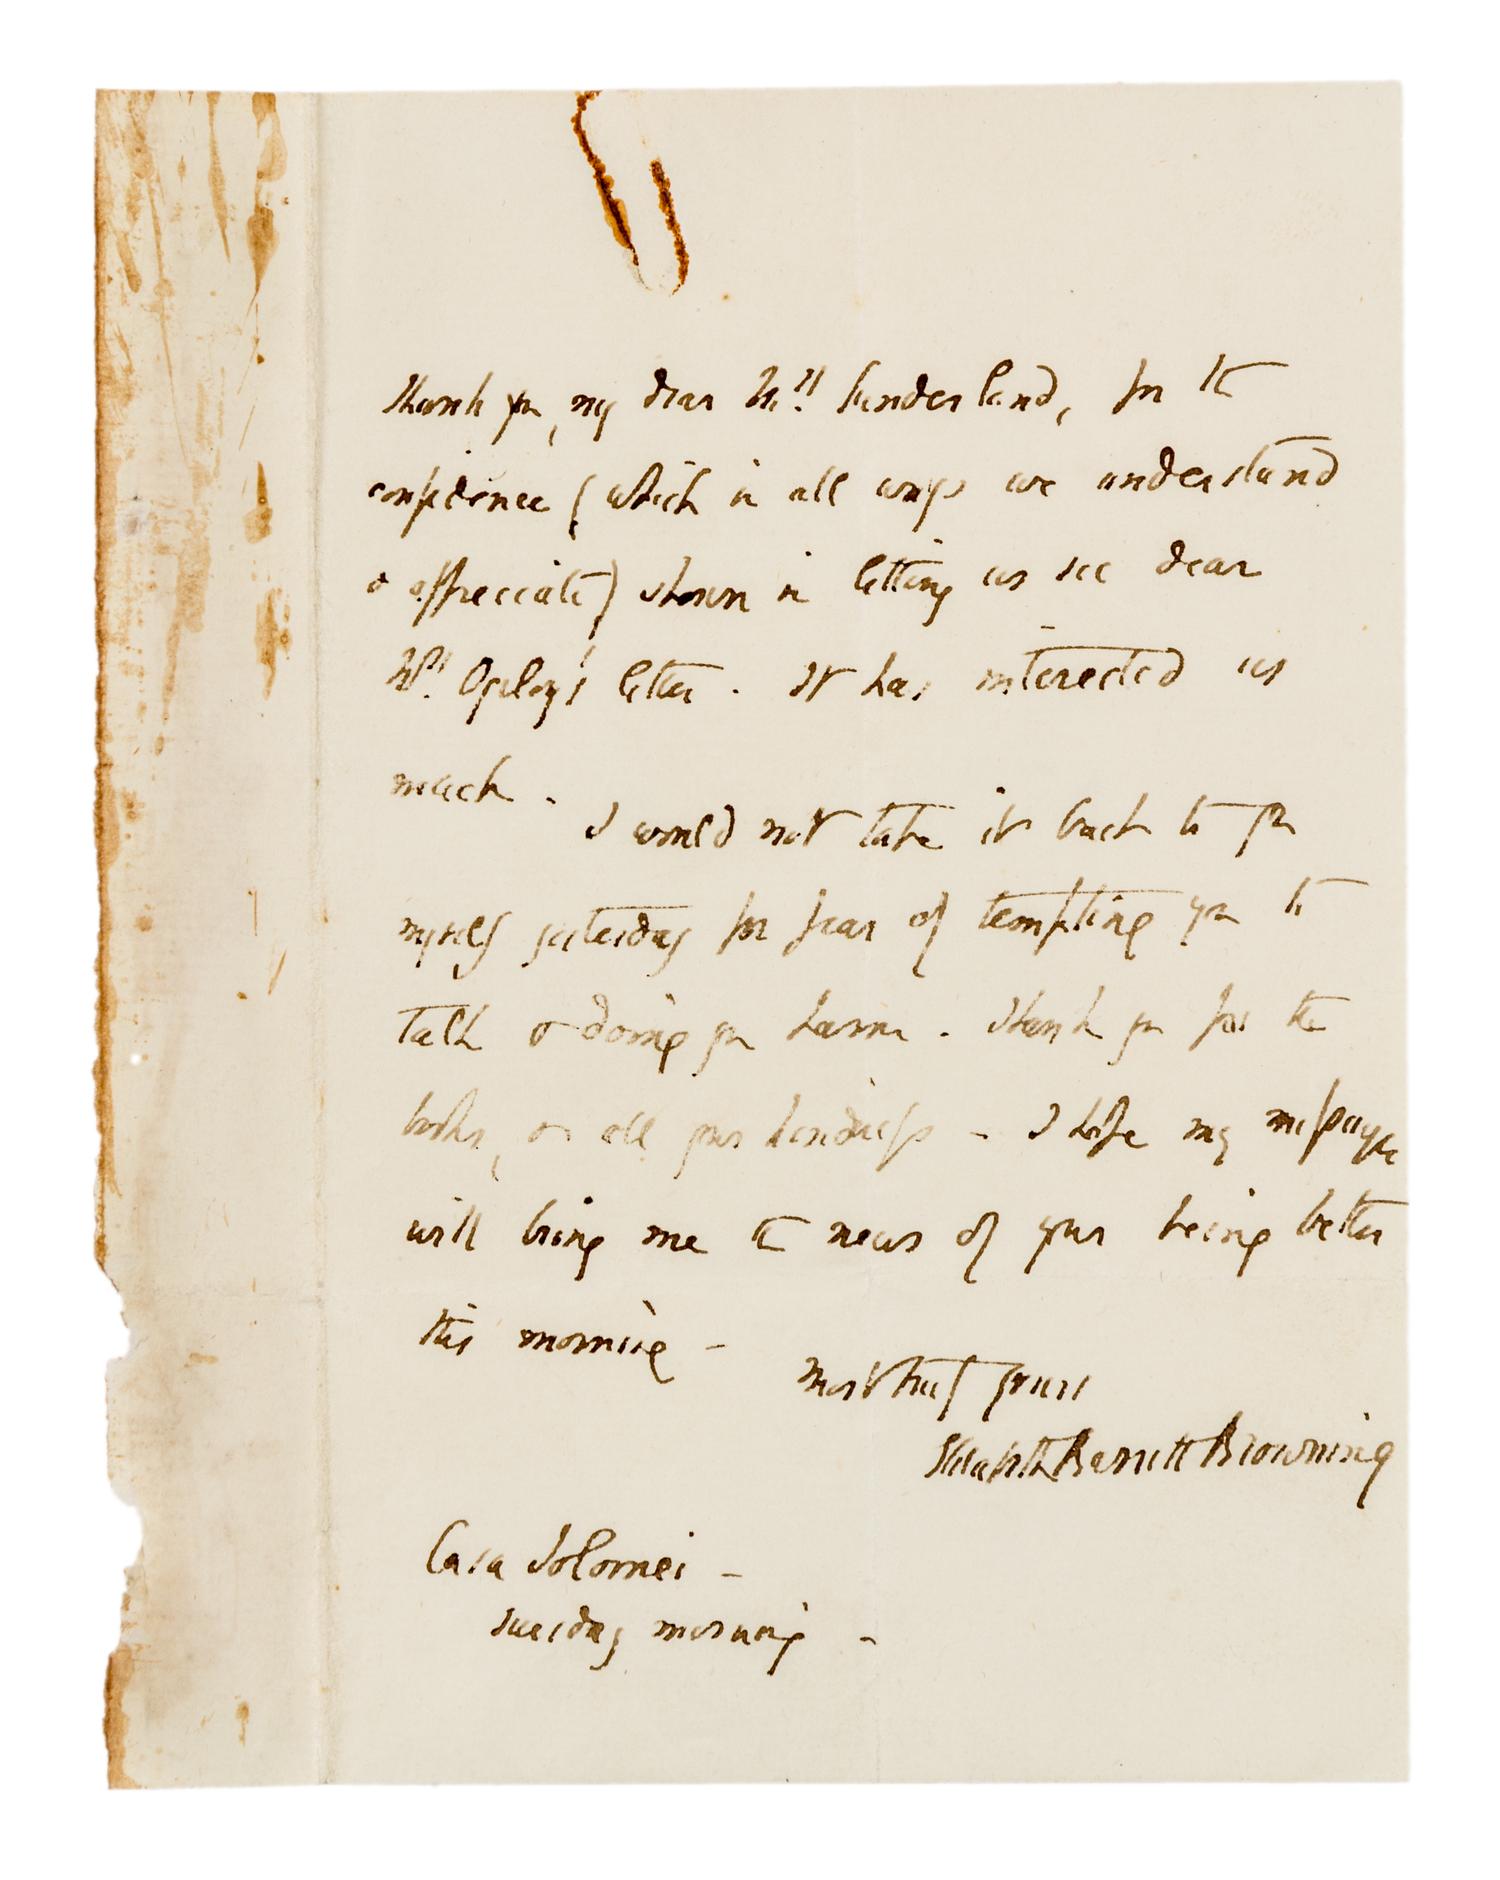 Thank you, my dear Mrs. Sunderland, for the
confidence (which in all ways we understand
& appreciate) shown in letting us see dear
Mrs. Ogilvy's letter. It has interested us
much.
I would not take it back to you
myself yesterday for fear of tempting you to
talk & doing you harm. Thank you for the
books, & all your kindness - I hope my messenger
will bring me the news of your being better
this morning -
Most truly yours
Elizabeth Barrett Browning
Casa Tolomei -
Tuesday morning -